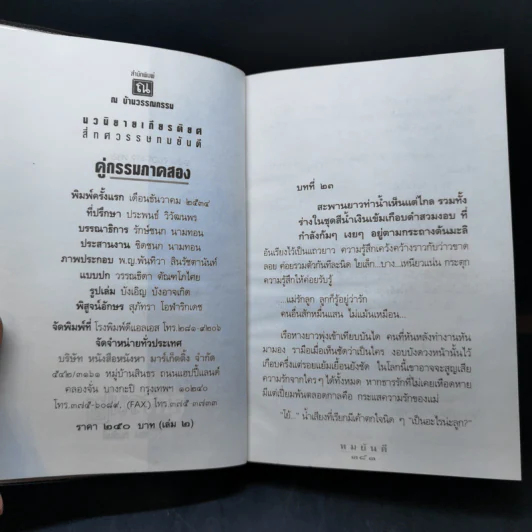 สำนักพิมพ์
ณ
ณ บ้านวรรณกรรม
นวนิยายเกียรติยศ
สี่ทศวรรษทมยันตี
คู่กรรมภาคสอง
พิมพ์ครั้งแรก เดือนธันวาคม ๒๕๓๔
ที่ปรึกษา ประพนธ์ วิวัฒนพร
บรรณาธิการ รักษ์ชนก นามทอน
ประสานงาน ชิตชนก นามทอน
ภาพประกอบ พ.ญ.พันทิวา สินรัชตานันท์
แบบปก วรรณธิดา ตัณฑโกไศย
รูปเล่ม บังเอิญ บังอาจเกิด
พิสูจน์อักษร สุภัทรา โอฬาริกเดช
จัดพิมพ์ที่ โรงพิมพ์ดีแอลเอส โทร.๒๘๑-๕๒๐๖
จัดจำหน่ายทั่วประเทศ
บริษัท หนังสือหนังหา มาร์เก็ตติ้ง จำกัด
๕๔๒/๓๑๖๑ หมู่บ้านสินธร ถนนแฮปปี้แลนด์
คลองจั่น บางกะปิ กรุงเทพฯ ๑๐๒๔๐
โทร.๓๗๕-๖๐๘๙. (FAX) โทร.๓๗๕-๓๗๓๓
ราคา ๒๕๐ บาท (เล่ม ๒)
บทที่ ๒๓
สะพานยาวท่าน้ำเห็นแต่ไกล รวมทั้ง
ร่างในชุดสีน้ำเงินเข้มเกือบดำสวมงอบ ที่
กำลังก้มๆ เงยๆ อยู่ตามกระถางต้นมะลิ
อันเรียงไว้เป็นแถวยาว ความรู้สึกเคว้งคว้างราวกับว่าวขาด
ลอย ค่อยรวมตัวกันทีละนิด ใยเล็ก...บาง...เหนียวแน่น กระตุก
ความรู้สึกให้ค่อยรับรู้
...แม่รักลูก ลูกก็รู้อยู่ว่ารัก
คนอื่นสักหมื่นแสน ไม่แม้นเหมือน...
เรือหางยาวพุ่งเข้าเทียบบันได คนที่หันหลังทำงานหัน
มามอง รามือเมื่อเห็นชัดว่าเป็นใคร งอบบังดวงหน้านั้นไว้
เกือบครึ่งแต่รอยแย้มเยื้อนยังชัด ในโลกนี้เขาอาจจะสูญเสีย
ความรักจากใครๆ ได้ทั้งหมด หากธารรักที่ไม่เคยเหือดหาย
มีแต่เปี่ยมพ้นตลอดกาลคือ กระแสความรักของแม่
"โย้..." น้ำเสียงที่เรียกมีเค้าตกใจนิด ๆ "เป็นอะไรน่ะลูก?"
ทมยันตี
๓๘๑